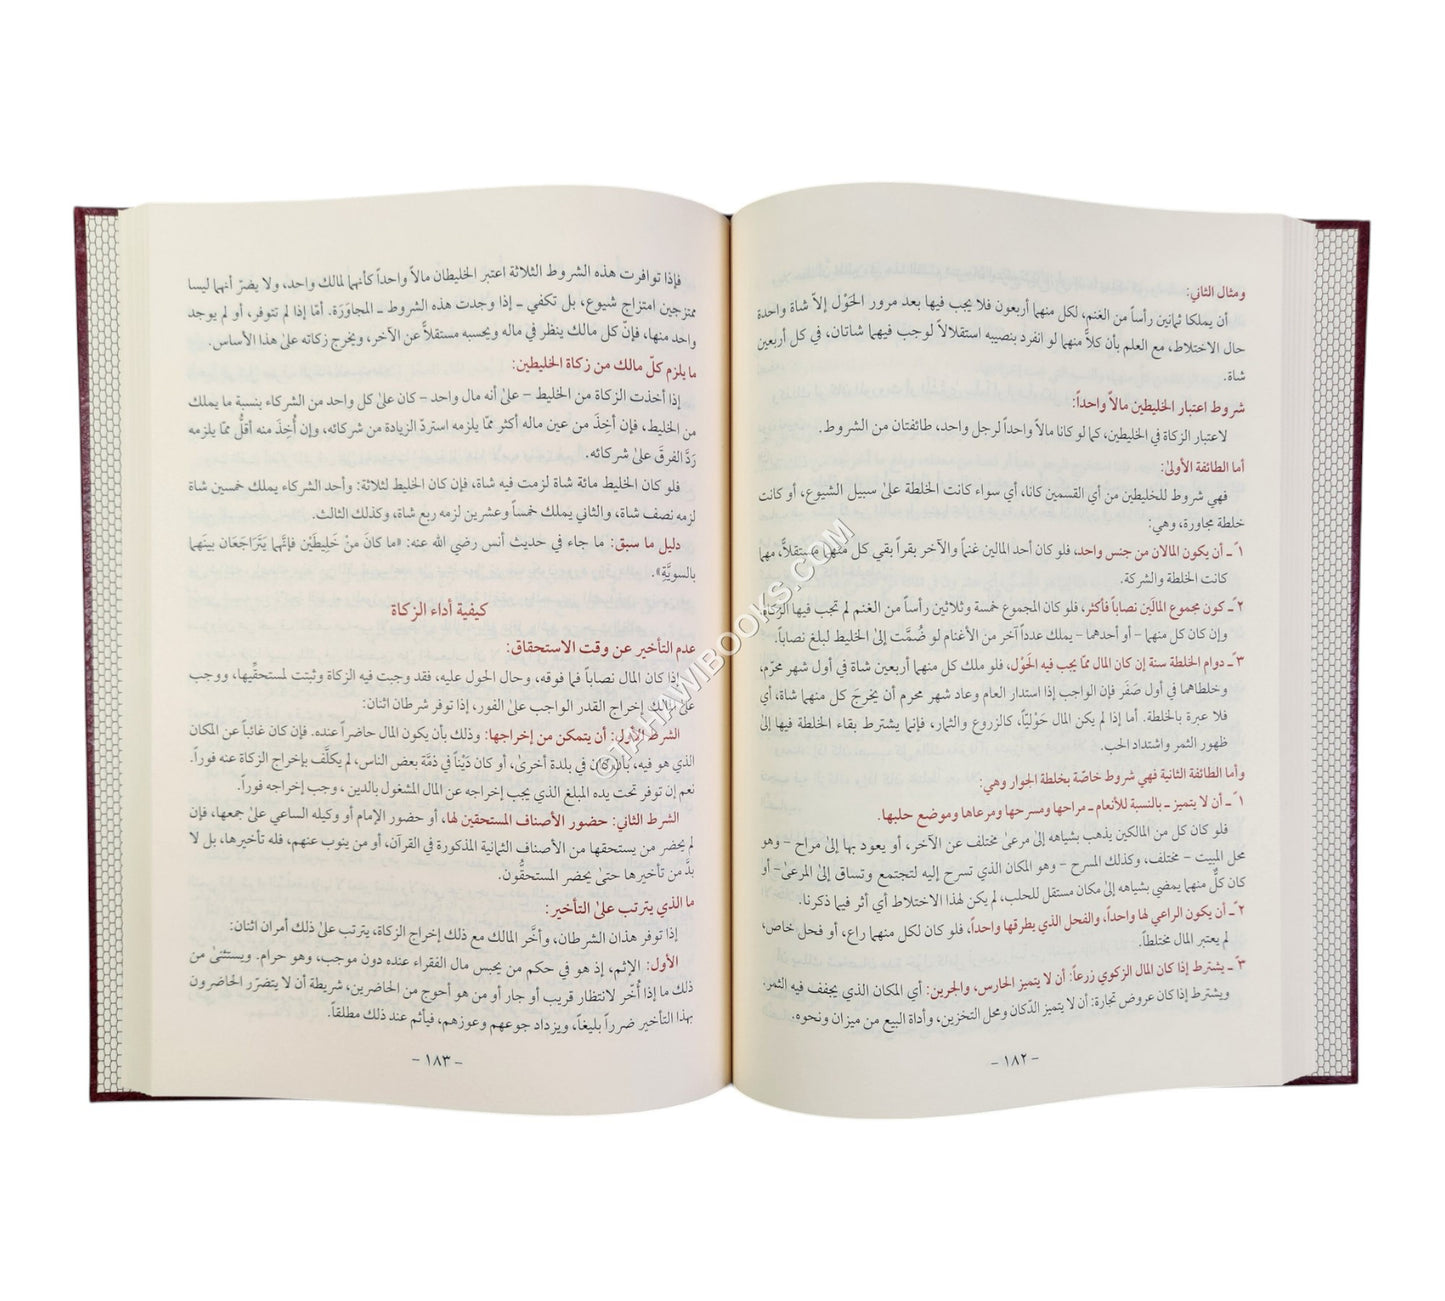 ومثال الثاني:
أن يملكا ثمانين رأساً من الغنم، لكل منهما أربعون فلا يجب فيها بعد مرور الحَوْل إلاّ شاة واحدة
حال الاختلاط، مع العلم بأن كلاًّ منهما لو انفرد بنصيبه استقلالاً لوجب فيهما شاتان، في كل أربعين
شاة.
شروط اعتبار الخليطين مالاً واحداً:
لاعتبار الزكاة في الخليطين، كما لو كانا مالاً واحداً لرجل واحد، طائفتان من الشروط.
أما الطائفة الأولىٰ:
فهي شروط للخليطين من أي القسمين كانا، أي سواء كانت الخلطة علىٰ سبيل الشيوع، أو كانت
خلطة مجاورة، وهي:
١ً ـ أن يكون المالان من جنس واحد، فلو كان أحد المالين غنماً والآخر بقراً بقي كل منهما مستقلاًّ، مهما
كانت الخلطة والشركة.
٢ً ـ كون مجموع المالَين نصاباً فأكثر، فلو كان المجموع خمسة وثلاثين رأساً من الغنم لم تجب فيها الزكاة
وإن كان كل منهما – أو أحدهما – يملك عدداً آخر من الأغنام لو ضُمَّت إلىٰ الخليط لبلغ نصاباً.
٣ً ـ دوام الخلطة سنة إن كان المال ممّا يجب فيه الحَوْل، فلو ملك كل منهما أربعين شاة في أول شهر محرّم،
وخلطاهما في أول صَفَر فإن الواجب إذا استدار العام وعاد شهر محرم أن يخرجَ كل منهما شاة، أي
فلا عبرة بالخلطة. أما إذا لم يكن المال حَوْليّاً، كالزروع والثمار، فإنما يشترط بقاء الخلطة فيها إلىٰ
ظهور الثمر واشتداد الحب.
وأما الطائفة الثانية فهي شروط خاصّة بخلطة الجوار وهي:
١ً ـ أن لا يتميز ـ بالنسبة للأنعام ـ مراحها ومسرحها ومرعاها وموضع حلبها.
فلو كان كل من المالكين يذهب بشياهه إلىٰ مرعىٰ مختلف عن الآخر، أو يعود بها إلىٰ مراح – وهو
محل المبيت – مختلف، وكذلك المسرح – وهو المكان الذي تسرح إليه لتجتمع وتساق إلىٰ المرعىٰ– أو
كان كلٌّ منهما يمضي بشياهه إلىٰ مكان مستقل للحلب، لم يكن لهذا الاختلاط أي أثر فيما ذكرنا.
٢ً ـ أن يكون الراعي لها واحداً، والفحل الذي يطرقها واحداً، فلو كان لكل منهما راع، أو فحل خاص،
لم يعتبر المال مختلطاً.
٣ً ـ يشترط إذا كان المال الزكوي زرعاً: أن لا يتميز الحارس، والجرين: أي المكان الذي يجفف فيه الثمر.
ويشترط إذا كان عروض تجارة: أن لا يتميز الدّكان ومحل التخزين، وأداة البيع من ميزان ونحوه.
– ١٨٢ –
فإذا توافرت هذه الشروط الثلاثة اعتبر الخليطان مالاً واحداً كأنهما لمالك واحد، ولا يضرّ أنهما ليسا
ممتزجين امتزاج شيوع، بل تكفي ـ إذا وجدت هذه الشروط ـ المجاوَرَة. أمّا إذا لم تتوفر، أو لم يوجد
واحد منها، فإنّ كل مالك ينظر في ماله ويحسبه مستقلاًّ عن الآخر، ويخرج زكاته علىٰ هذا الأساس.
ما يلزم كلّ مالك من زكاة الخليطين:
إذا أخذت الزكاة من الخليط – علىٰ أنه مال واحد – كان علىٰ كل واحد من الشركاء بنسبة ما يملك
من الخليط، فإن أخِذَ من عين ماله أكثر ممّا يلزمه استردّ الزيادة من شركائه، وإن أُخِذَ منه أقلُّ ممّا يلزمه
رَدَّ الفرقَ علىٰ شركائه.
فلو كان الخليط مائة شاة لزمت فيه شاة، فإن كان الخليط لثلاثة: وأحد الشركاء يملك خمسين شاة
لزمه نصف شاة، والثاني يملك خمساً وعشرين لزمه ربع شاة، وكذلك الثالث.
دليل ما سبق: ما جاء في حديث أنس رضي الله عنه: «ما كانَ مِنْ خَلِيطَيْن فإنَّهما يَتَرَاجَعَان بينَهما
بالسويَّةِ».
كيفية أداء الزكاة
عدم التأخير عن وقت الاستحقاق:
إذا كان المال نصاباً فما فوقه، وحال الحول عليه، فقد وجبت فيه الزكاة وثبتت لمستحقِّيها، ووجب
علىٰ المالك إخراج القدر الواجب علىٰ الفور، إذا توفر شرطان اثنان:
الشرط الأول: أن يتمكن من إخراجها: وذلك بأن يكون المال حاضراً عنده. فإن كان غائباً عن المكان
الذي هو فيه، بأن كان في بلدة أخرىٰ، أو كان دَيْناً في ذمَّة بعض الناس، لم يكلَّف بإخراج الزكاة عنه فوراً.
نعم إن توفر تحت يده المبلغ الذي يجب إخراجه عن المال المشغول بالدين، وجب إخراجه فوراً.
الشرط الثاني: حضور الأصناف المستحقين لها، أو حضور الإمام أو وكيله الساعي علىٰ جمعها، فإن
لم يحضر من يستحقها من الأصناف الثمانية المذكورة في القرآن، أو من ينوب عنهم، فله تأخيرها، بل لا
بدَّ من تأخيرها حتىٰ يحضر المستحقُّون.
ما الذي يترتب علىٰ التأخير:
إذا توفر هذان الشرطان، وأخَّر المالك مع ذلك إخراج الزكاة، يترتب علىٰ ذلك أمران اثنان:
الأول: الإثم، إذ هو في حكم من يحبس مال الفقراء عنده دون موجب، وهو حرام. ويستثنىٰ من
ذلك ما إذا أُخّر لانتظار قريب أو جار أو من هو أحوج من الحاضرين، شريطة أن لا يتضرّر الحاضرون
بهذا التأخير ضرراً بليغاً، ويزداد جوعهم وعوزهم، فيأثم عند ذلك مطلقاً.
– ١٨٣ –
©JAHAWIBOOKS.COM